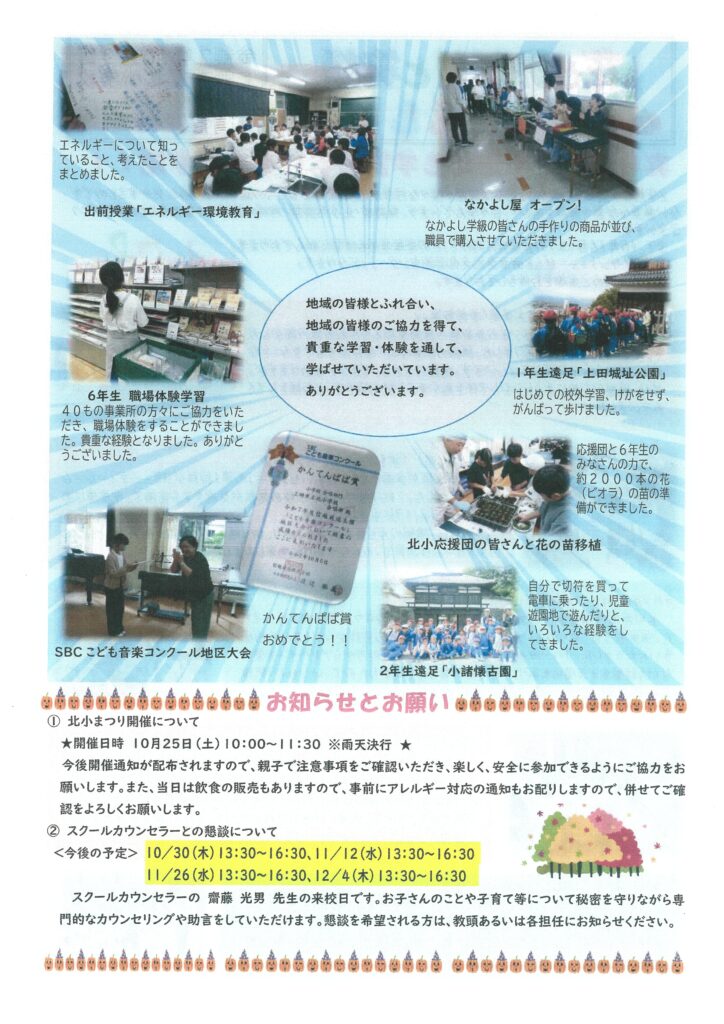 エネルギーについて知っ
ていること、考えたことを
まとめました。
出前授業「エネルギー環境教育」
なかよし屋 オープン!
なかよし学級の皆さんの手作りの商品が並び、
職員で購入させていただきました。
地域の皆様とふれ合い、
地域の皆様のご協力を得て、
貴重な学習・体験を通して、
学ばせていただいています。
ありがとうございます。
6年生 職場体験学習
40もの事業所の方々にご協力をいた
だき、職場体験をすることができまし
た。貴重な経験となりました。ありがと
うございました。
1年生遠足「上田城址公園」
はじめての校外学習、けがをせず、
がんばって歩けました。
こども音楽コンクール
かんてんぱぱ賞
応援団と6年生の
みなさんの力で、
約2000本の花
(ビオラ)の苗の準
備ができました。
北小応援団の皆さんと花の苗移植
かんてんぱぱ賞
おめでとう!!
SBCこども音楽コンクール地区大会
自分で切符を買って
電車に乗ったり、児童
遊園地で遊んだりと、
いろいろな経験をし
てきました。
2年生遠足「小諸懐古園」
お知らせとお願い
① 北小まつり開催について
★開催日時 10月25日(土)10:00~11:30 ※雨天決行 ★
今後開催通知が配布されますので、親子で注意事項をご確認いただき、楽しく、安全に参加できるようにご協力をお
願いします。また、当日は飲食の販売もありますので、事前にアレルギー対応の通知もお配りしますので、併せてご確
認をよろしくお願いします。
② スクールカウンセラーとの懇談について
<今後の予定> 10/30(木)13:30~16:30、11/12(水)13:30~16:30
11/26(水)13:30~16:30、12/4(木)13:30~16:30
スクールカウンセラーの 齋藤 光男 先生の来校日です。お子さんのことや子育て等について秘密を守りながら専
門的なカウンセリングや助言をしていただけます。懇談を希望される方は、教頭あるいは各担任にお知らせください。